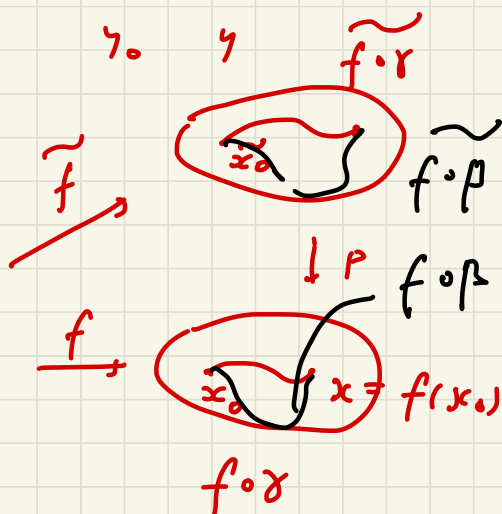 y₀ y
f∘γ
x̃₀
f̃
f∘β
p
f∘β
f
x₀ x = f(x₀)
f∘γ